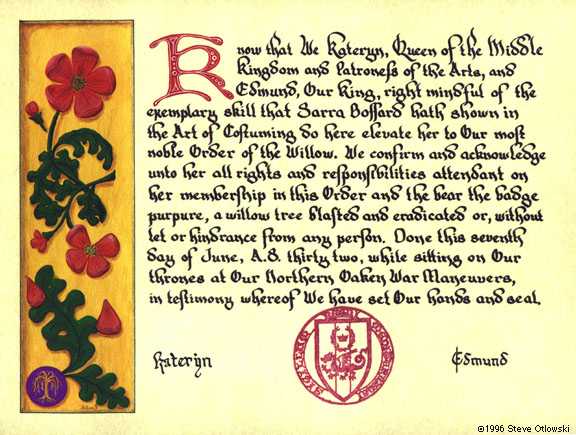 Know that We Kateryn, Queen of the Middle
Kingdom and Patroness of the Arts, and
Edmund, Our King, right mindful of the
exemplary skill that Sarra Bossard hath shown in
the Art of Costuming do here elevate her to Our most
noble Order of the Willow. We confirm and acknowledge
unto her all rights and responsibilities attendant on
her membership in this Order and the bear the badge
purpure, a willow tree blasted and eradicated or, without
let or hindrance from any person. Done this seventh
day of June, A.S. thirty two, while sitting on Our
thrones at Our Northern Oaken War Maneuvers,
in testimony whereof We have set Our hands and seal.
Kateryn
Edmund
©1996 Steve Otlowski